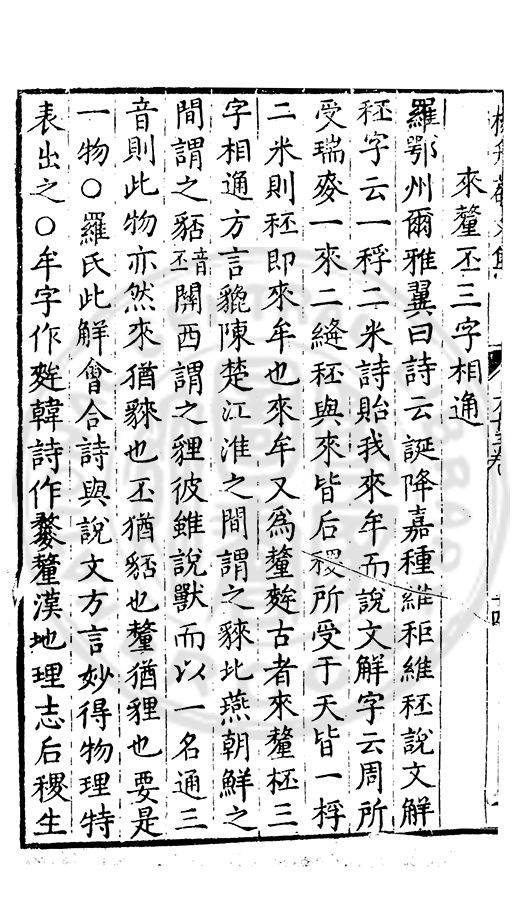 來釐丕三字相通
羅鄂州爾雅翼曰詩云誕降嘉種維秬維秠說文解
秠字云一稃二米詩貽我來牟而說文解字云周所
受瑞麥一來二縫秠與來皆后稷所受于天皆一桴
二米則秠即來牟也來牟又為釐麰古者來釐秠三
字相通方言貔陳楚江淮之間謂之䅘北燕朝鮮之
間謂之貊音丕關西謂之貍彼雖說獸而以一名通三
音則此物亦然來猶䅘也丕猶貊也釐猶貍也要是
一物〇羅氏此解會合詩與說文方言妙得物理特
表出之〇牟字作麰韓詩作嫠釐漢地理志后稷生